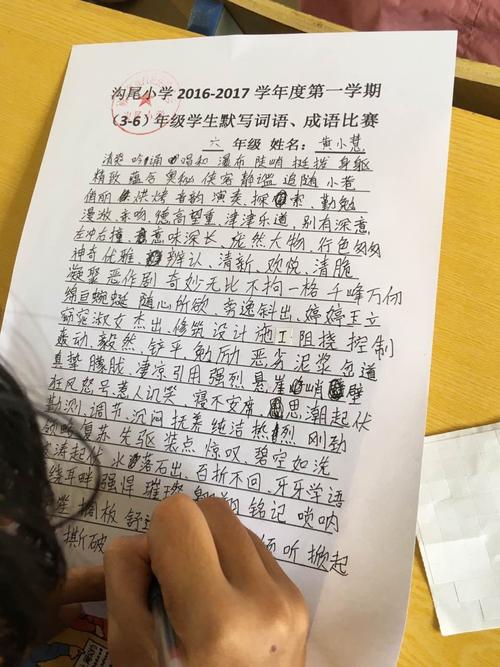 沟尾小学2016-2017学年度第一学期
（3-6）年级学生默写词语、成语比赛
六 年级 姓名：黄小慧
清爽 吟诵 唱和 瀑布 陡峭 挺拔 身躯
精致 蕴含 奥秘 侠客 静谧 追随 小巷
俏丽 烘烤 音韵 演奏、探索、勤勉
漫放 亲吻 德高望重、津津乐道、别有深意
左冲右撞、意味深长、庞然大物、行色匆匆
神奇 优雅 辨认、清新、欢悦、清脆
凝聚 恶作剧 奇妙无比 不拘一格 千峰万仞
绵亘蜿蜒 随心所欲、旁逸斜出、婷婷玉立
窈窕淑女 杰出、修筑 设计 施工 阻挠 控制
轰动、毅然、铲平、勉励 恶劣 泥浆 隧道
真挚 朦胧、凄凉 引用 强烈 悬崖峭壁
狂风怒号 惹人讥笑 寝不安席、思潮起伏
勘测、调节、沉闷 抚养 纯洁 热烈 刚劲
领略 复苏 先驱 装点 惊叹 碧空如洗
波涛起 水落石出、百折不回、牙牙学语
绕耳畔 强悍 璀璨 翱翔 铭记 唢呐
搁板 舒
撕破 倾听 掀起